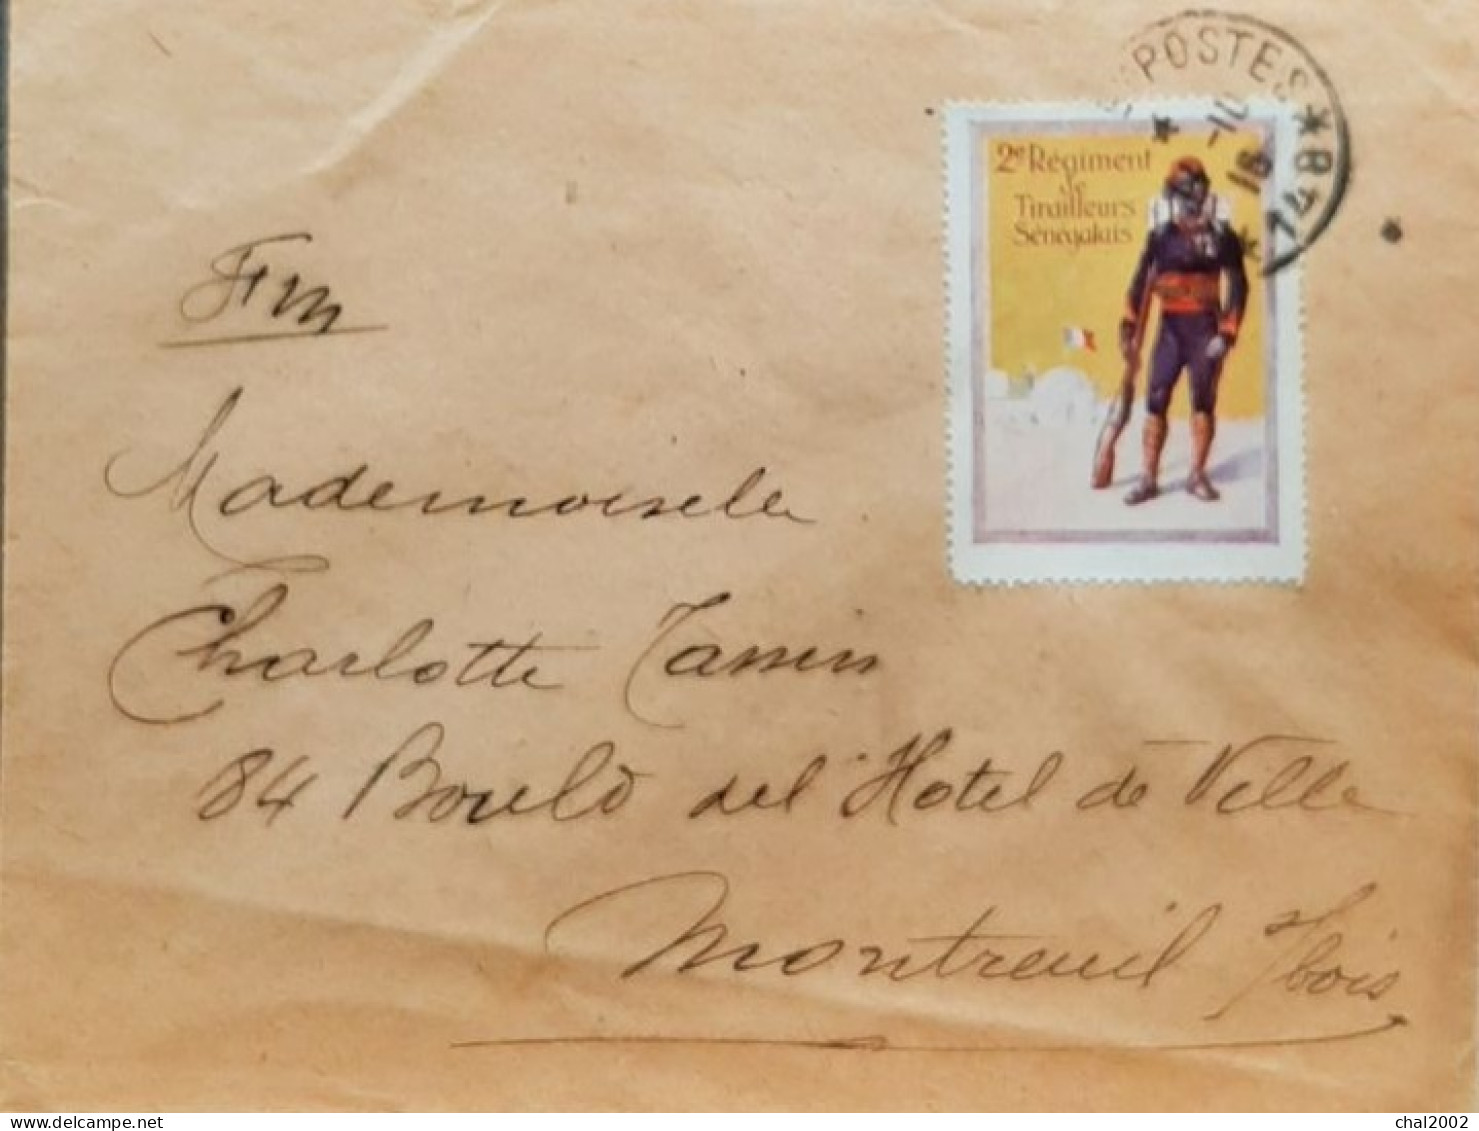 POSTES * 84
-10
18
2e Régiment
de
Tirailleurs
Sénégalais
FM
Mademoiselle
Charlotte Tassin
84 Bould del'Hotel de Ville
Montreuil s/bois
chal2002